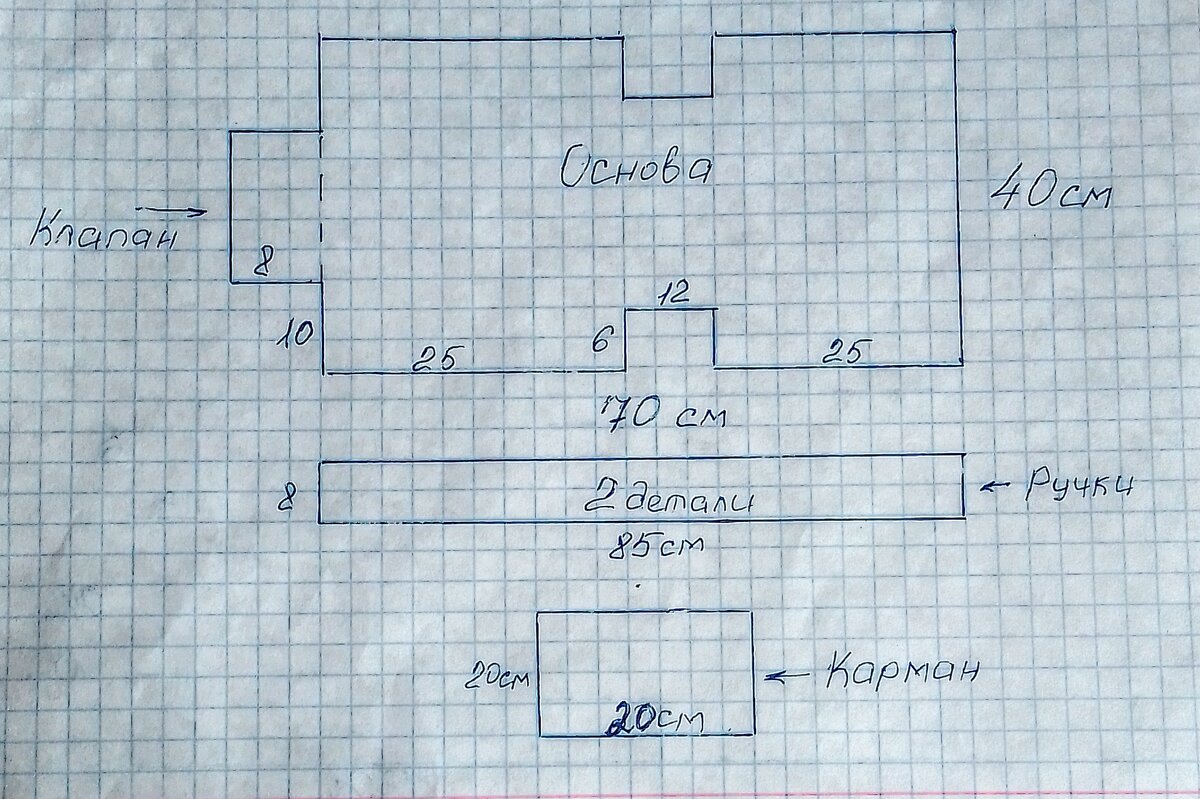 Основа
40см
Клапан
8
10
25
6
12
25
70 см
8
2 детали
Ручки
85см
20см
Карман
20см